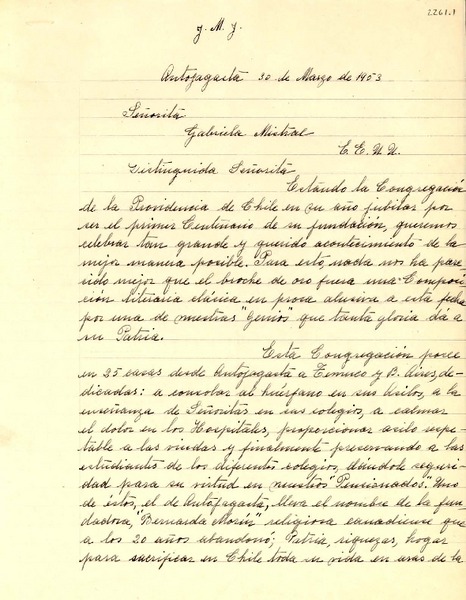 2261.1
J. M. J.
Antofagasta 30 de Marzo de 1953
Señorita
Gabriela Mistral
E. E. U. U.
Distinguida Señorita
Estando la Congregación
de la Providencia de Chile en su año jubilar por
ser el primer Centenario de su fundación, queremos
celebrar tan grande y querido acontecimiento de la
mejor manera posible. Para esto, nada nos ha pare-
cido mejor que el broche de oro fuera una Composi-
ción literaria clásica en prosa alusiva a esta fecha
por una de nuestras "Genios" que tanta gloria dá a
su Patria.
Esta Congregación posee
en 25 casas desde Antofagasta a Temuco y B. Aires, de-
dicadas: a consolar al huérfano en sus Asilos, a la
enseñanza de Señoritas en sus colegios, a calmar
el dolor en los Hospitales, proporcionar asilo respe-
table a las viudas y finalmente preservando a las
estudiantes de los diferentes colegios, dándole seguri-
dad para su virtud en nuestros "Pensionados". Uno
de éstos, el de Antofagasta, lleva el nombre de la fun-
dadora, "Bernarda Morin" religiosa canadiense que
a los 20 años abandonó; Patria, riquezas, hogar
para sacrificar en Chile toda su vida en aras de la